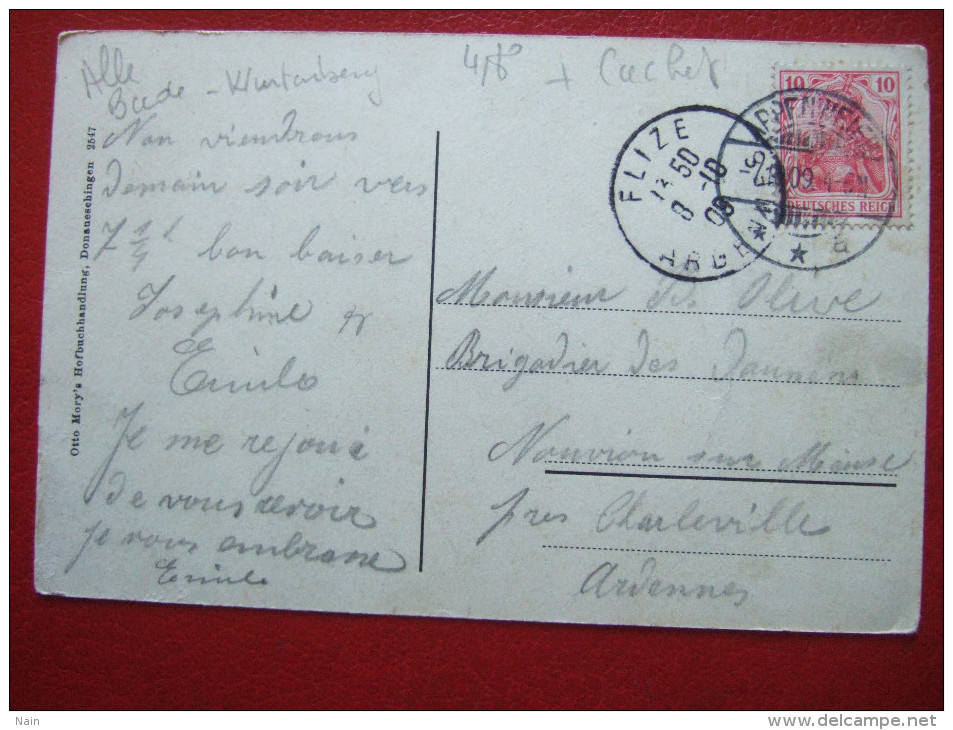 Alle
Bade - Wurtenberg
4/8 + Cachet
Nan viendrons
demain soir vers
7 1/4 h bon baiser
Josephine et
Emile
Je me rejouie
de vous revoir
je vous embrasse
Emile
Otto Mory's Hofbuchhandlung, Donaueschingen 2547
10 10
DEUTSCHES REICH
FLIZE
13 50
8 -10
09
ARDENNES
APPENWEIER
09
Monsieur
Brigadier des Douanes
Nouvion sur Meuse
près Charleville
Ardennes
www.delcampe.net
Nain